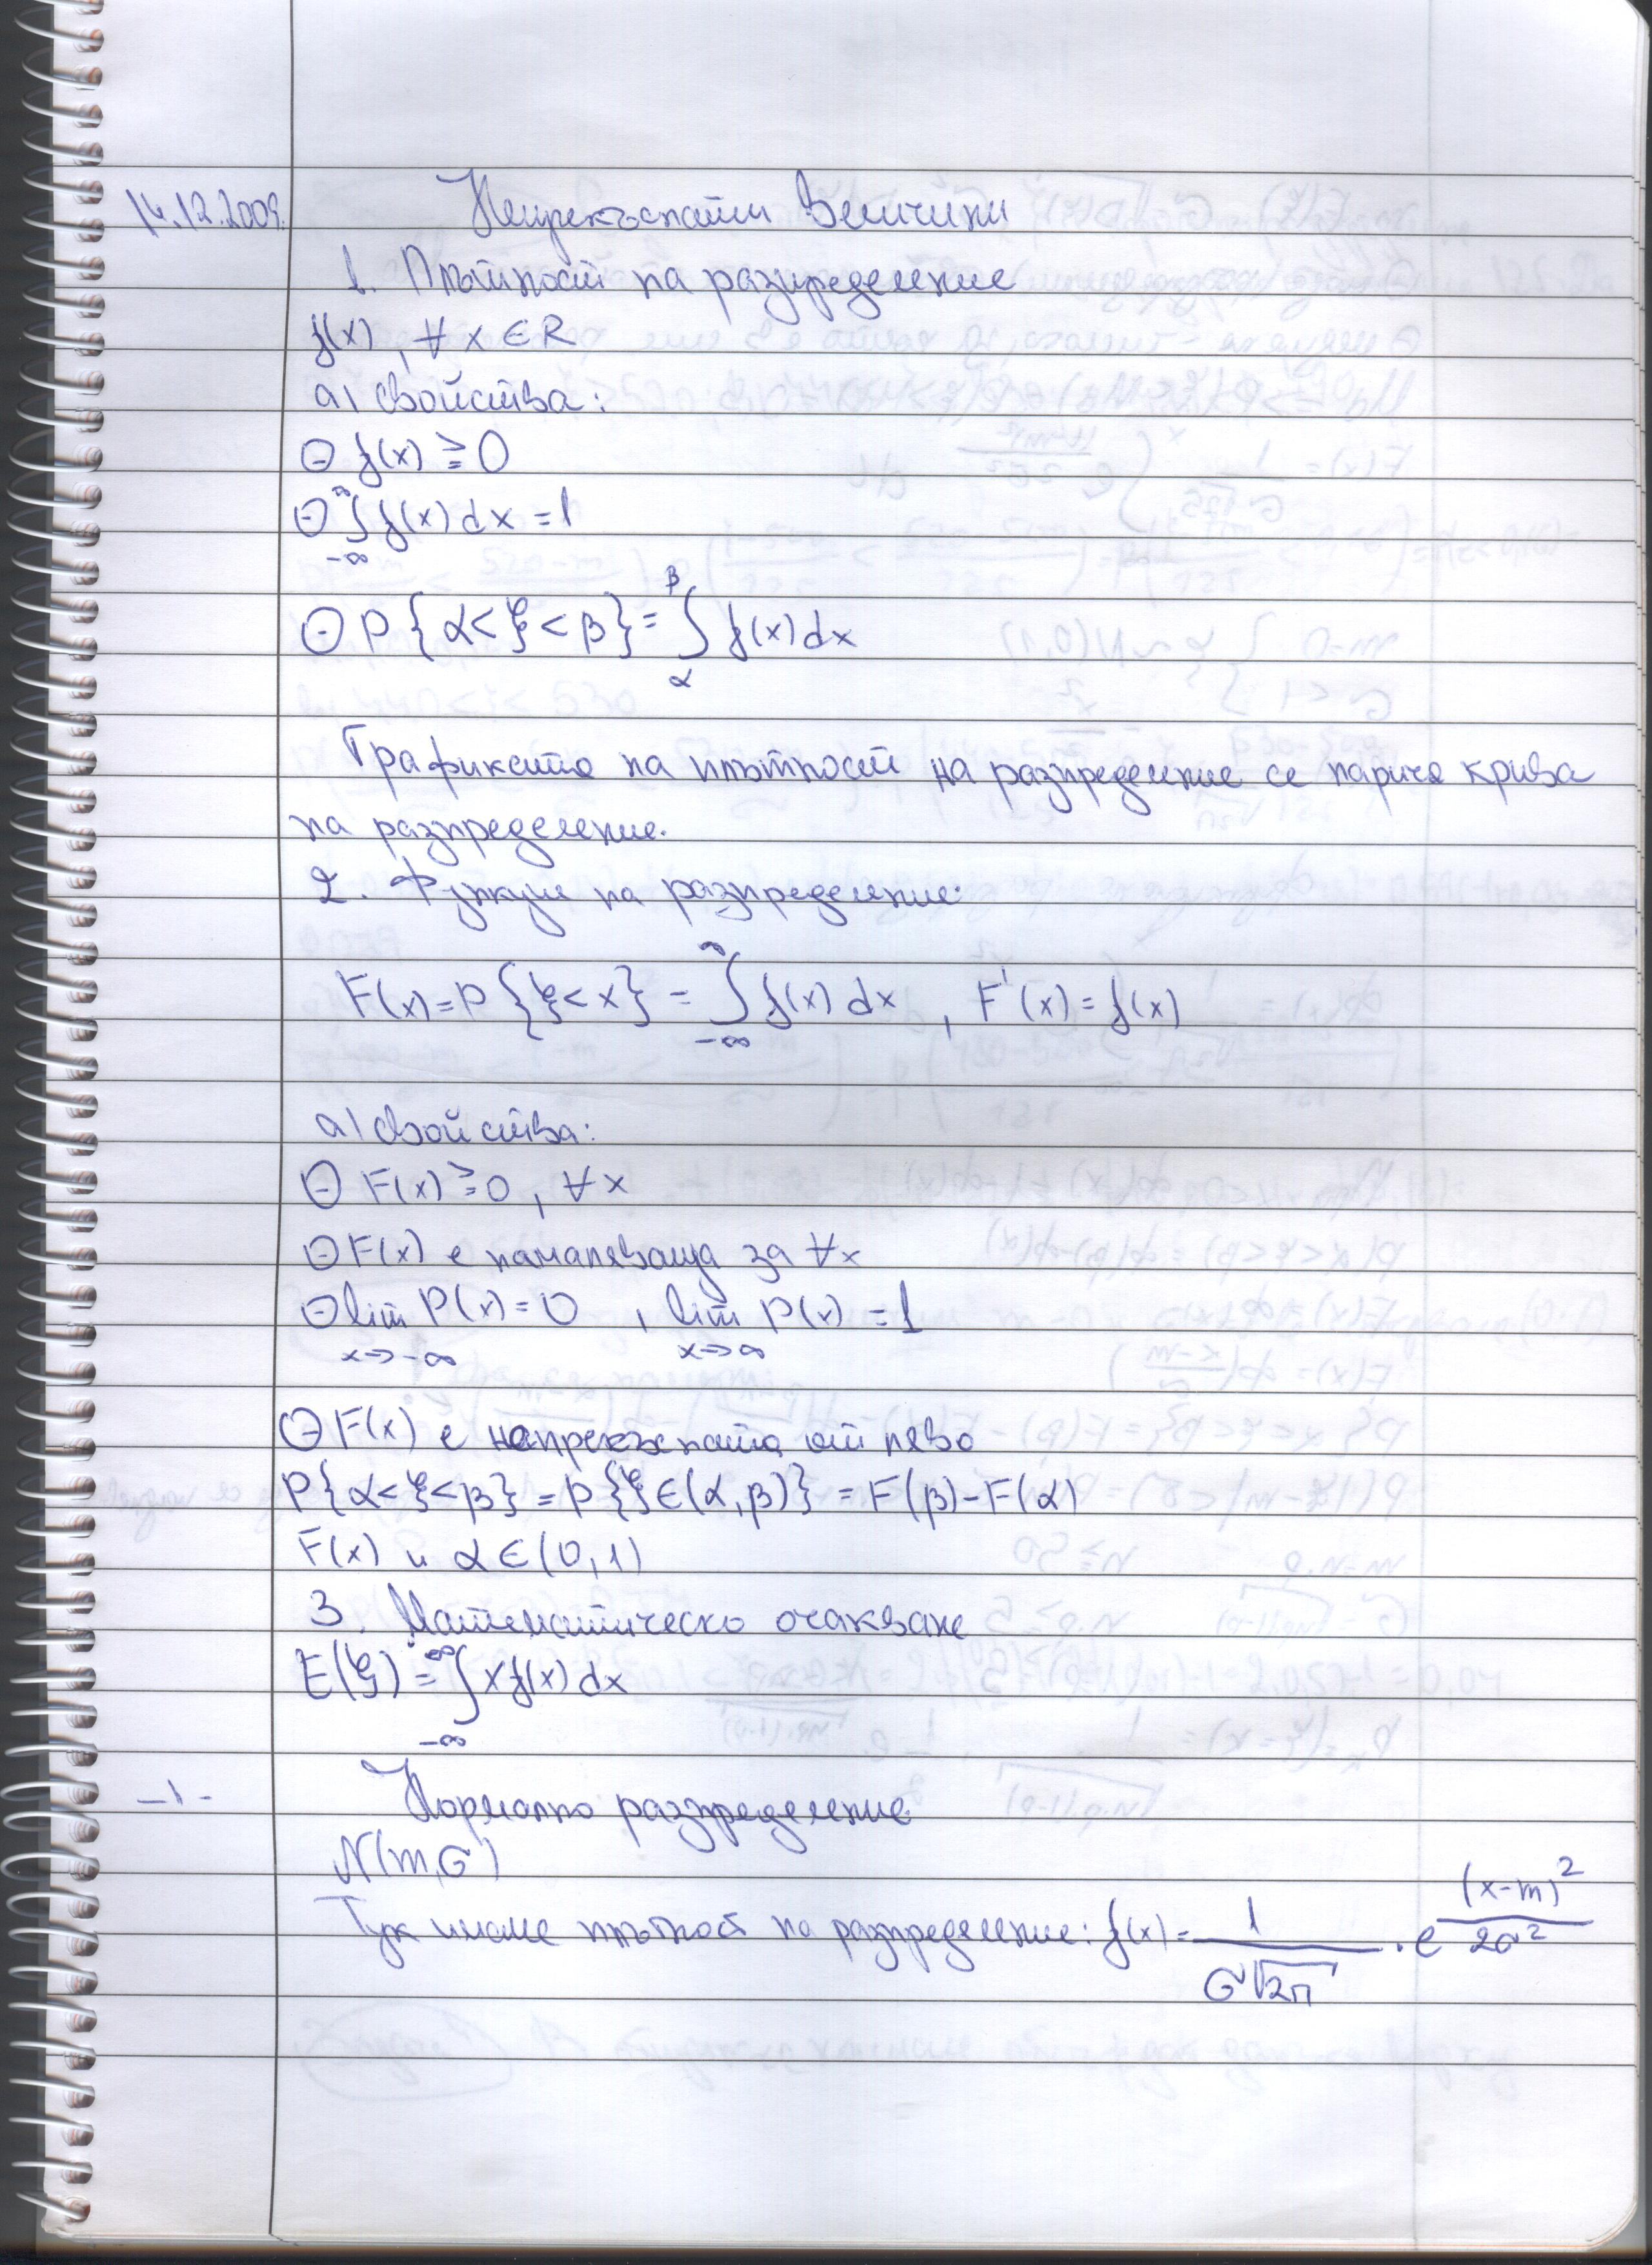 14.12.2009. Непрекъснати величини
1. Плътност на разпределение
f(x), ∀ x ∈ R
а) свойства:
⊖ f(x) ≥ 0
⊖ ∞∫-∞ f(x) dx = 1
⊖ P{α < ξ < β} = β∫α f(x) dx
Графиката на плътност на разпределение се нарича крива
на разпределение.
2. Функция на разпределение:
F(x) = P{ξ < x} = ∞∫-∞ f(x) dx , F'(x) = f(x)
а) свойства:
⊖ F(x) ≥ 0, ∀x
⊖ F(x) е намаляваща за ∀x
⊖ lim P(x) = 0 , lim P(x) = 1
x→-∞ x→∞
⊖ F(x) е непрекъсната от ляво
P{α < ξ < β} = P{ξ ∈ (α, β)} = F(β) - F(α)
F(x) и α ∈ (0, 1)
3. Математическо очакване
E(ξ) = ∞∫-∞ x f(x) dx
-1- Нормално разпределение
N(m, σ)
Тук имаме плътност на разпределение: f(x) = 1/(σ√2π) . e^((x-m)²/2σ²)